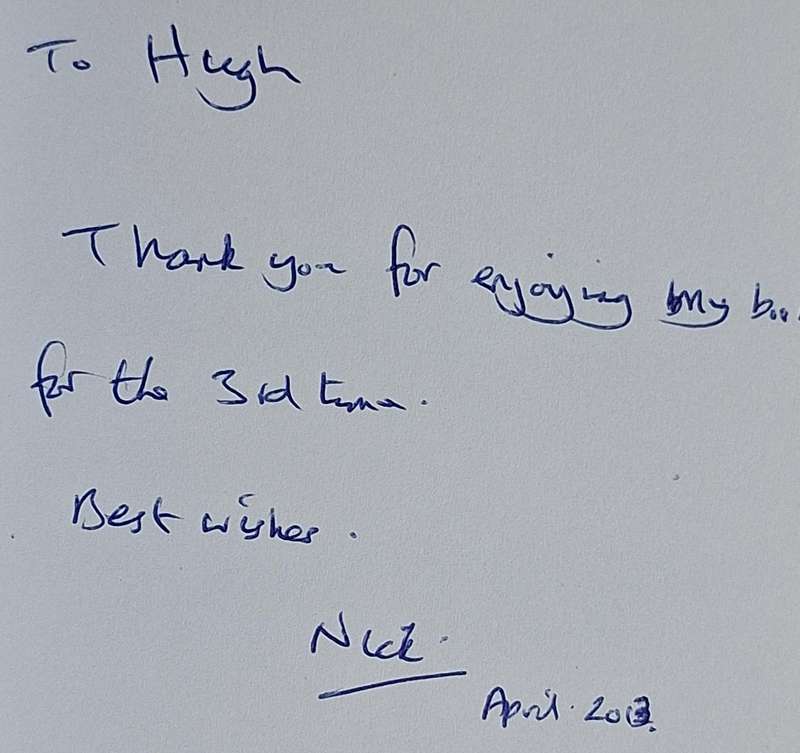 To Hugh
Thank you for enjoying my
for the 3rd time.
Best wishes.
Nick.
April 2013.